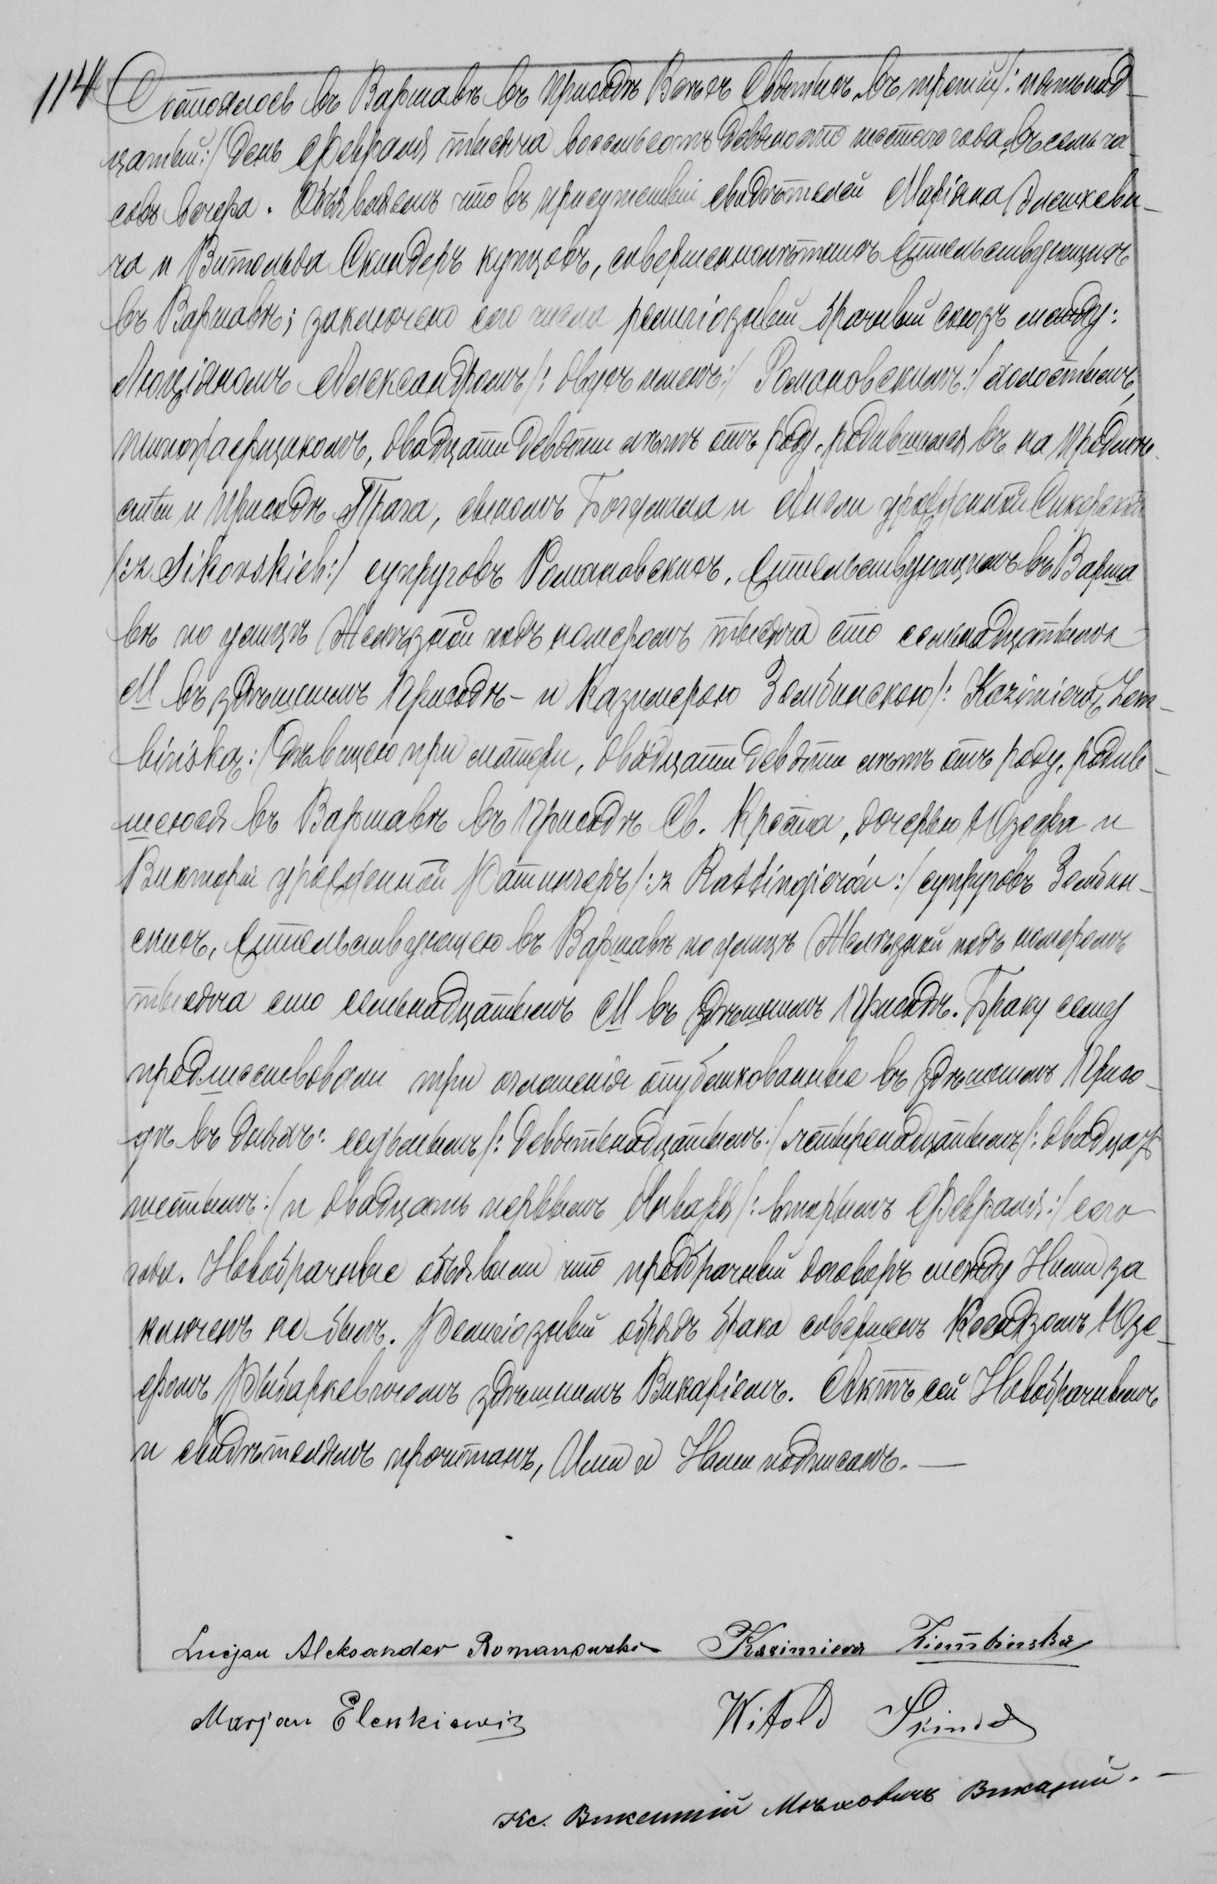 114
Состоялось въ Варшавѣ въ Приходѣ Всѣхъ Святыхъ, въ третій /: пятьнад-
цатый :/ день Февраля тысяча восемьсотъ девяносто шестого года, въ семь ча-
совъ вечера. Объявляемъ что въ присутствіи свидѣтелей Маріана Эленкеви-
ча и Витольда Скиндеръ купцовъ, совершеннолѣтнихъ жительствующихъ
въ Варшавѣ; заключено сего числа религіозный брачный союзъ между:
Люціаномъ Александромъ /: двухъ именъ :/ Романовскимъ :/ холостымъ,
типографщикомъ, двадцати девяти лѣтъ отъ роду, родившимся въ на Предмѣ-
стіи и Приходѣ Прага, сыномъ Богумила и Анели урожденной Сикорской
/: z Sikorskich :/ супруговъ Романовскихъ, жительствующимъ въ Варша
вѣ по улицѣ Желѣзной подъ номеромъ тысяча сто семнадцатымъ
М въ здѣшнемъ Приходѣ – и Казимерою Зембинскою /: Kazimierą Zem-
bińską :/ дѣвицею при матери, двадцати девяти лѣтъ отъ роду, родив-
шеюся въ Варшавѣ въ Приходѣ Св. Креста, дочерью Юзефа и
Викторіи урожденной Ратингеръ /: z Rattingierów :/ супруговъ Зембин-
скихъ, жительствующею въ Варшавѣ по улицѣ Желѣзной подъ номеромъ
тысяча сто семьнадцатымъ М въ здѣшнемъ Приходѣ. Браку сему
предшествовали три оглашенія опубликованные въ здѣшнемъ Прихо-
дѣ въ дняхъ: седьмымъ /: девятнадцатымъ :/ четырнадцатымъ /: двадцать
шестымъ :/ и двадцать первымъ Января /: вторымъ Февраля :/ сего
года. Новобрачные объявили что предбрачный договоръ между Ними за
ключенъ не былъ. Религіозный обрядъ брака совершенъ Ксендзомъ Юзе-
фомъ Рыбаркевичомъ здѣшнимъ Викаріемъ. Актъ сей Новобрачнымъ
и свидѣтелямъ прочитанъ, Ими и Нами подписанъ. —
Lucjan Aleksander Romanowski Kazimiera Ziembińska
Marjan Elenkiewicz Witold Skinder
Кс. Викентій Викарий. —